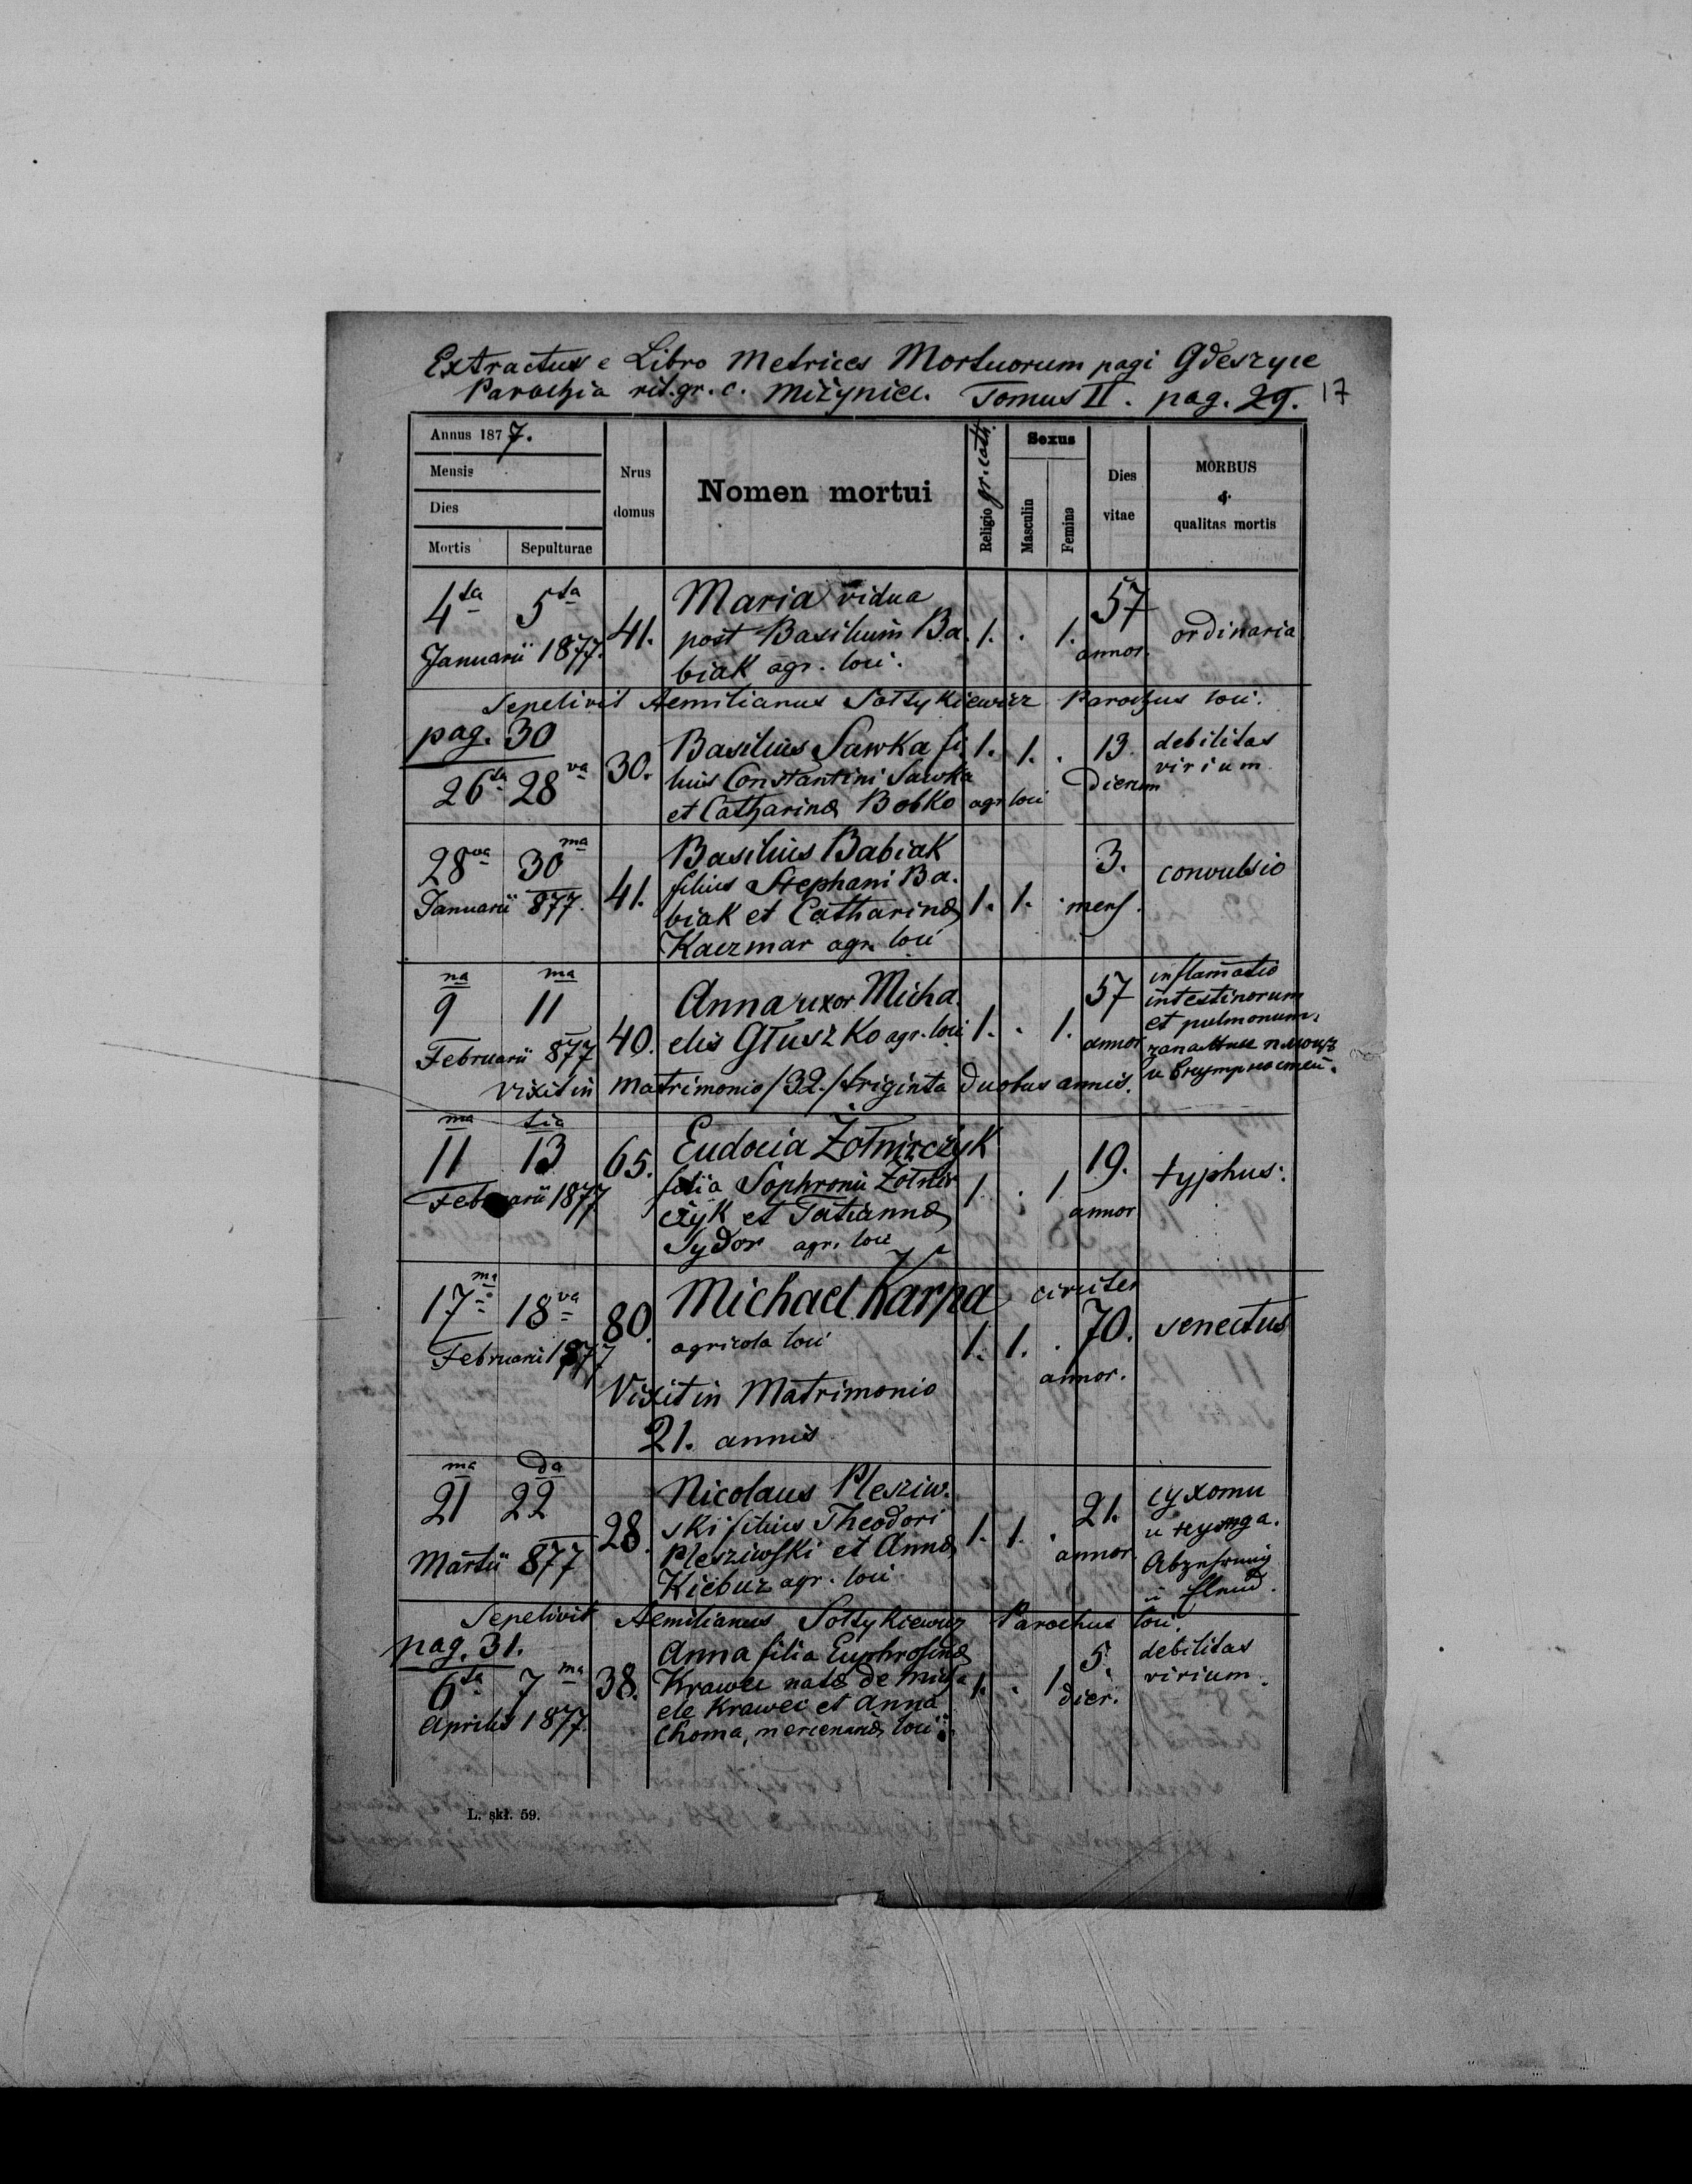 Extractus e Libro Metrices Mortuorum pagi Gdeszyce
Parochia rit. gr. c. Miżyniec. Tomus II. pag. 29. 17
Annus 1877.
Mensis
Dies
Mortis Sepulturae
Nrus domus
Nomen mortui
Religio gr. cath.
Sexus
Masculin
Femina
Dies vitae
MORBUS & qualitas mortis
4ta 5ta
Januarii 1877.
41.
Maria vidua
post Basilium Ba
biak agr. loci.
1. . 1.
57
annor.
ordinaria
Sepelivit Aemilianus Sołtykiewicz Parochus loci.
pag. 30
26ta 28va
30.
Basilius Sawka fi
lius Constantini Sawka
et Catharinae Bobko agr loci
1. 1. .
13.
dierum
debilitas
virium
28va 30ma
Januarii 877.
41.
Basilius Babiak
filius Stephani Ba.
biak et Catharinae
Kaczmar agr. loci
1. 1. .
3.
mens.
convulsio
9na 11ma
Februarii 877
40.
Anna uxor Micha.
elis Głuszko agr. loci
1. . 1.
57
annor
inflamatio
intestinorum
et pulmonum.
Vixit in matrimonio /32./ triginta duobus annis.
11ma 13tia
Februarii 1877
65.
Eudocia Żołnirczyk
filia Sophronii Żołnir
czyk et Tatiannae
Sydor agr. loci
1. . 1
19.
annor
typhus:
17ma 18va
Februarii 1877
80.
Michael Karpa
agricola loci
1. 1. .
circiter
70.
annor.
senectus
Vixit in Matrimonio
21. annis
21ma 22da
Martii 877
28.
Nicolaus Plesziw.
ski filius Theodori
Plesziwski et Annae
Kiebuz agr. loci
1. 1. .
21.
annor.
Sepelivit Aemilianus Sołtykiewicz Parochus loci.
pag. 31.
6ta 7ma
Aprilis 1877.
38.
Anna filia Euphrosinae
Krawec natae de Micha
ele Krawec et Anna
Choma, mercenariae loci
1. . 1
5.
dier.
debilitas
virium.
L. skł. 59.